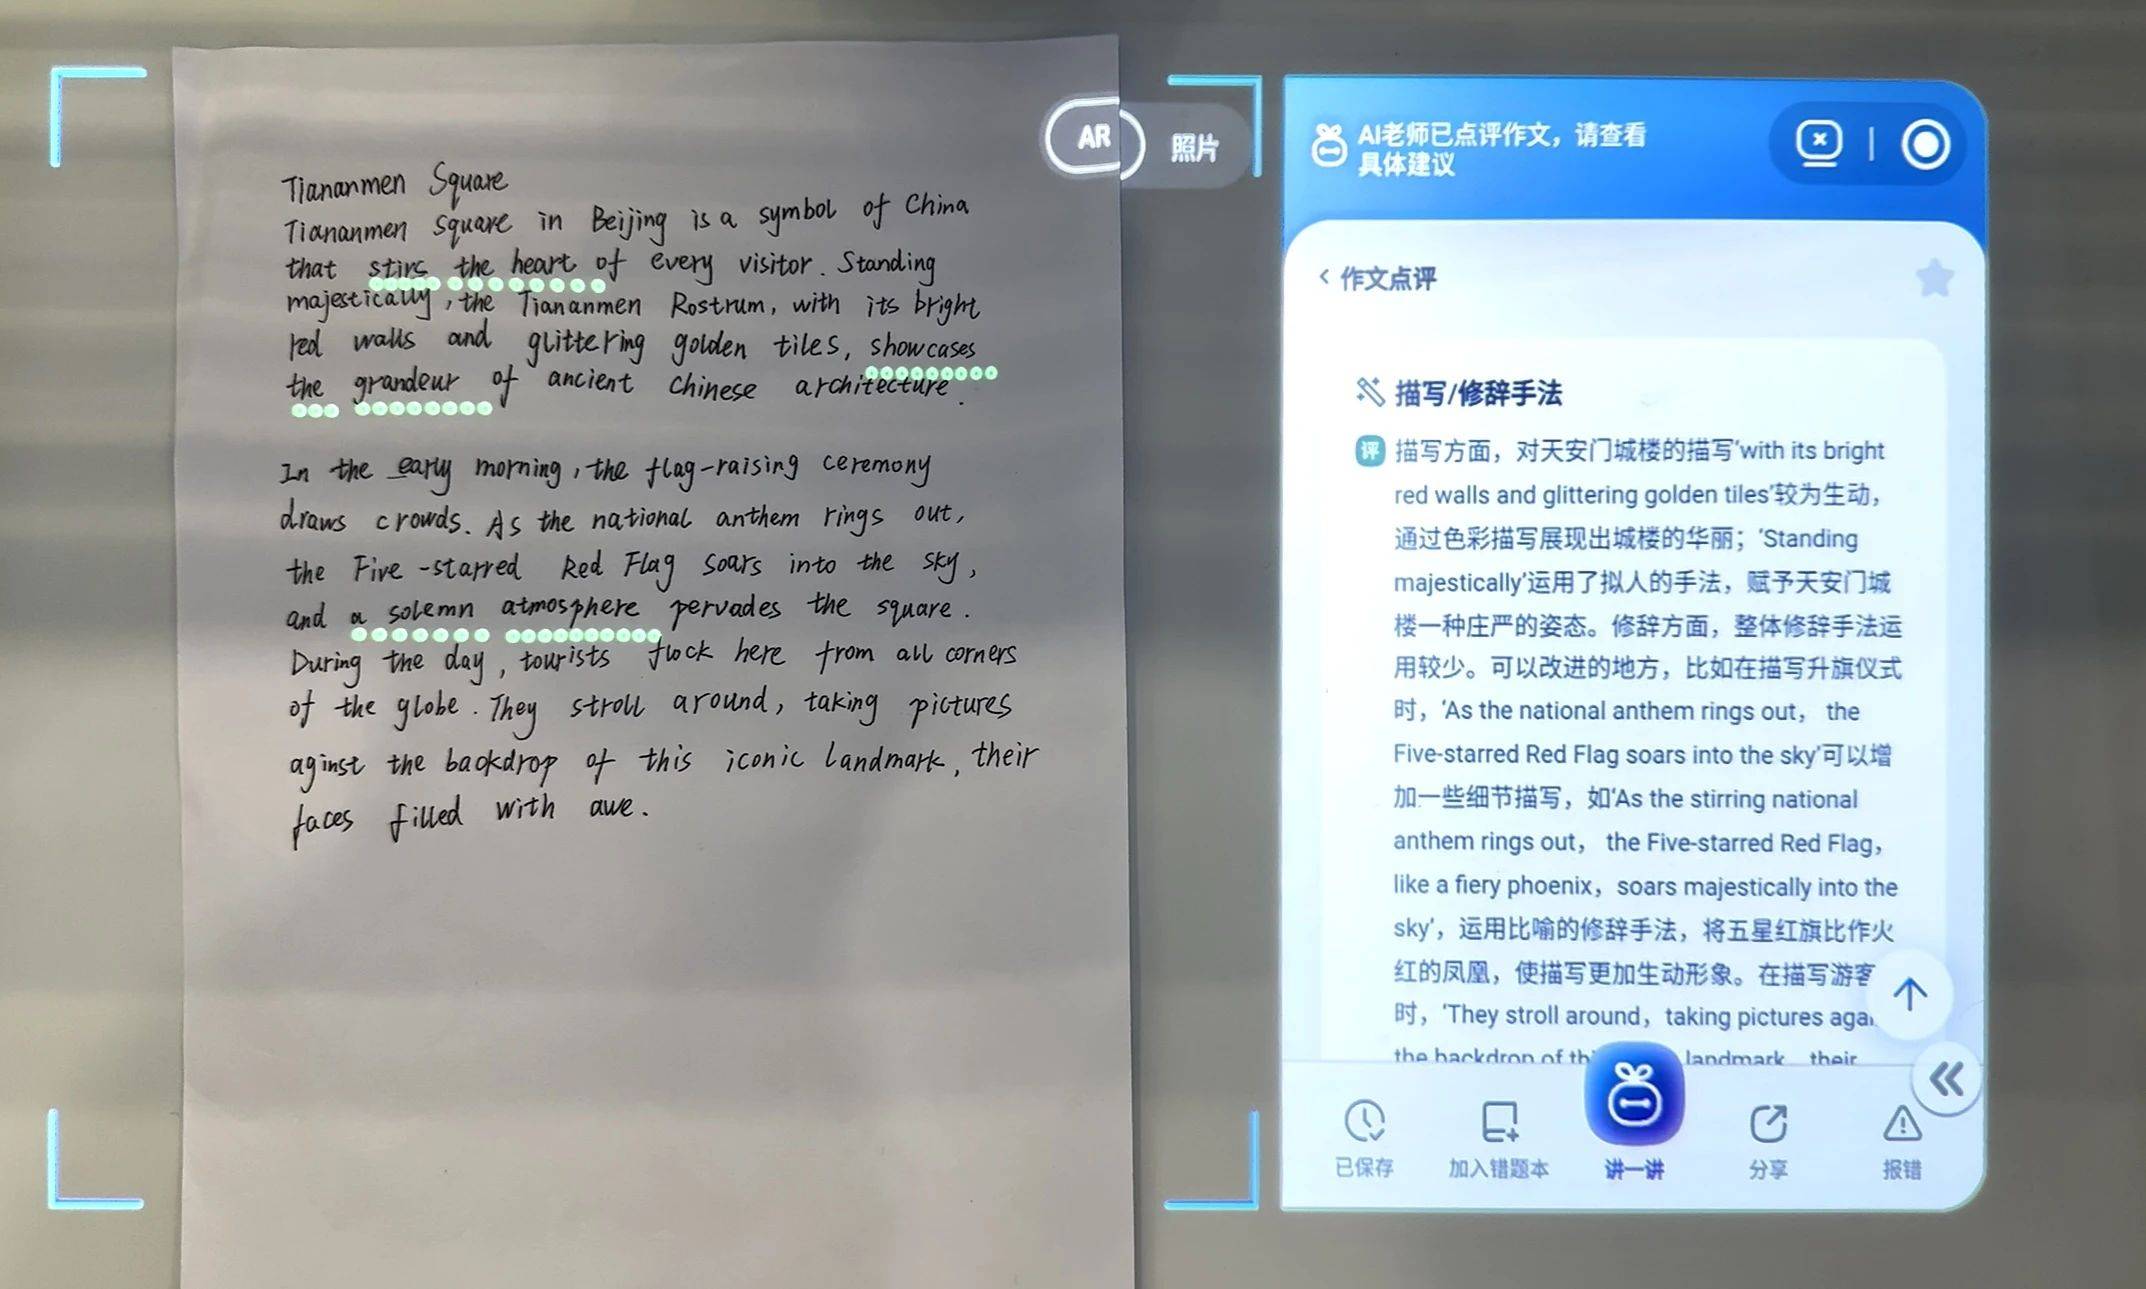 Tiananmen Square
Tiananmen Square in Beijing is a symbol of China
that stirs the heart of every visitor. Standing
majestically, the Tiananmen Rostrum, with its bright
red walls and glittering golden tiles, showcases
the grandeur of ancient Chinese architecture.
In the early morning, the flag-raising ceremony
draws crowds. As the national anthem rings out,
the Five-starred Red Flag soars into the sky,
and a solemn atmosphere pervades the square.
During the day, tourists flock here from all corners
of the globe. They stroll around, taking pictures
aginst the backdrop of this iconic landmark, their
faces filled with awe.
AR
照片
AI老师已点评作文，请查看
具体建议
作文点评
描写/修辞手法
评 描写方面，对天安门城楼的描写'with its bright
red walls and glittering golden tiles'较为生动，
通过色彩描写展现出城楼的华丽；'Standing
majestically'运用了拟人的手法，赋予天安门城
楼一种庄严的姿态。修辞方面，整体修辞手法运
用较少。可以改进的地方，比如在描写升旗仪式
时，'As the national anthem rings out， the
Five-starred Red Flag soars into the sky'可以增
加一些细节描写，如'As the stirring national
anthem rings out， the Five-starred Red Flag，
like a fiery phoenix，soars majestically into the
sky'，运用比喻的修辞手法，将五星红旗比作火
红的凤凰，使描写更加生动形象。在描写游客
时，'They stroll around，taking pictures
the backdrop of landmark，their
已保存
加入错题本
讲一讲
分享
报错